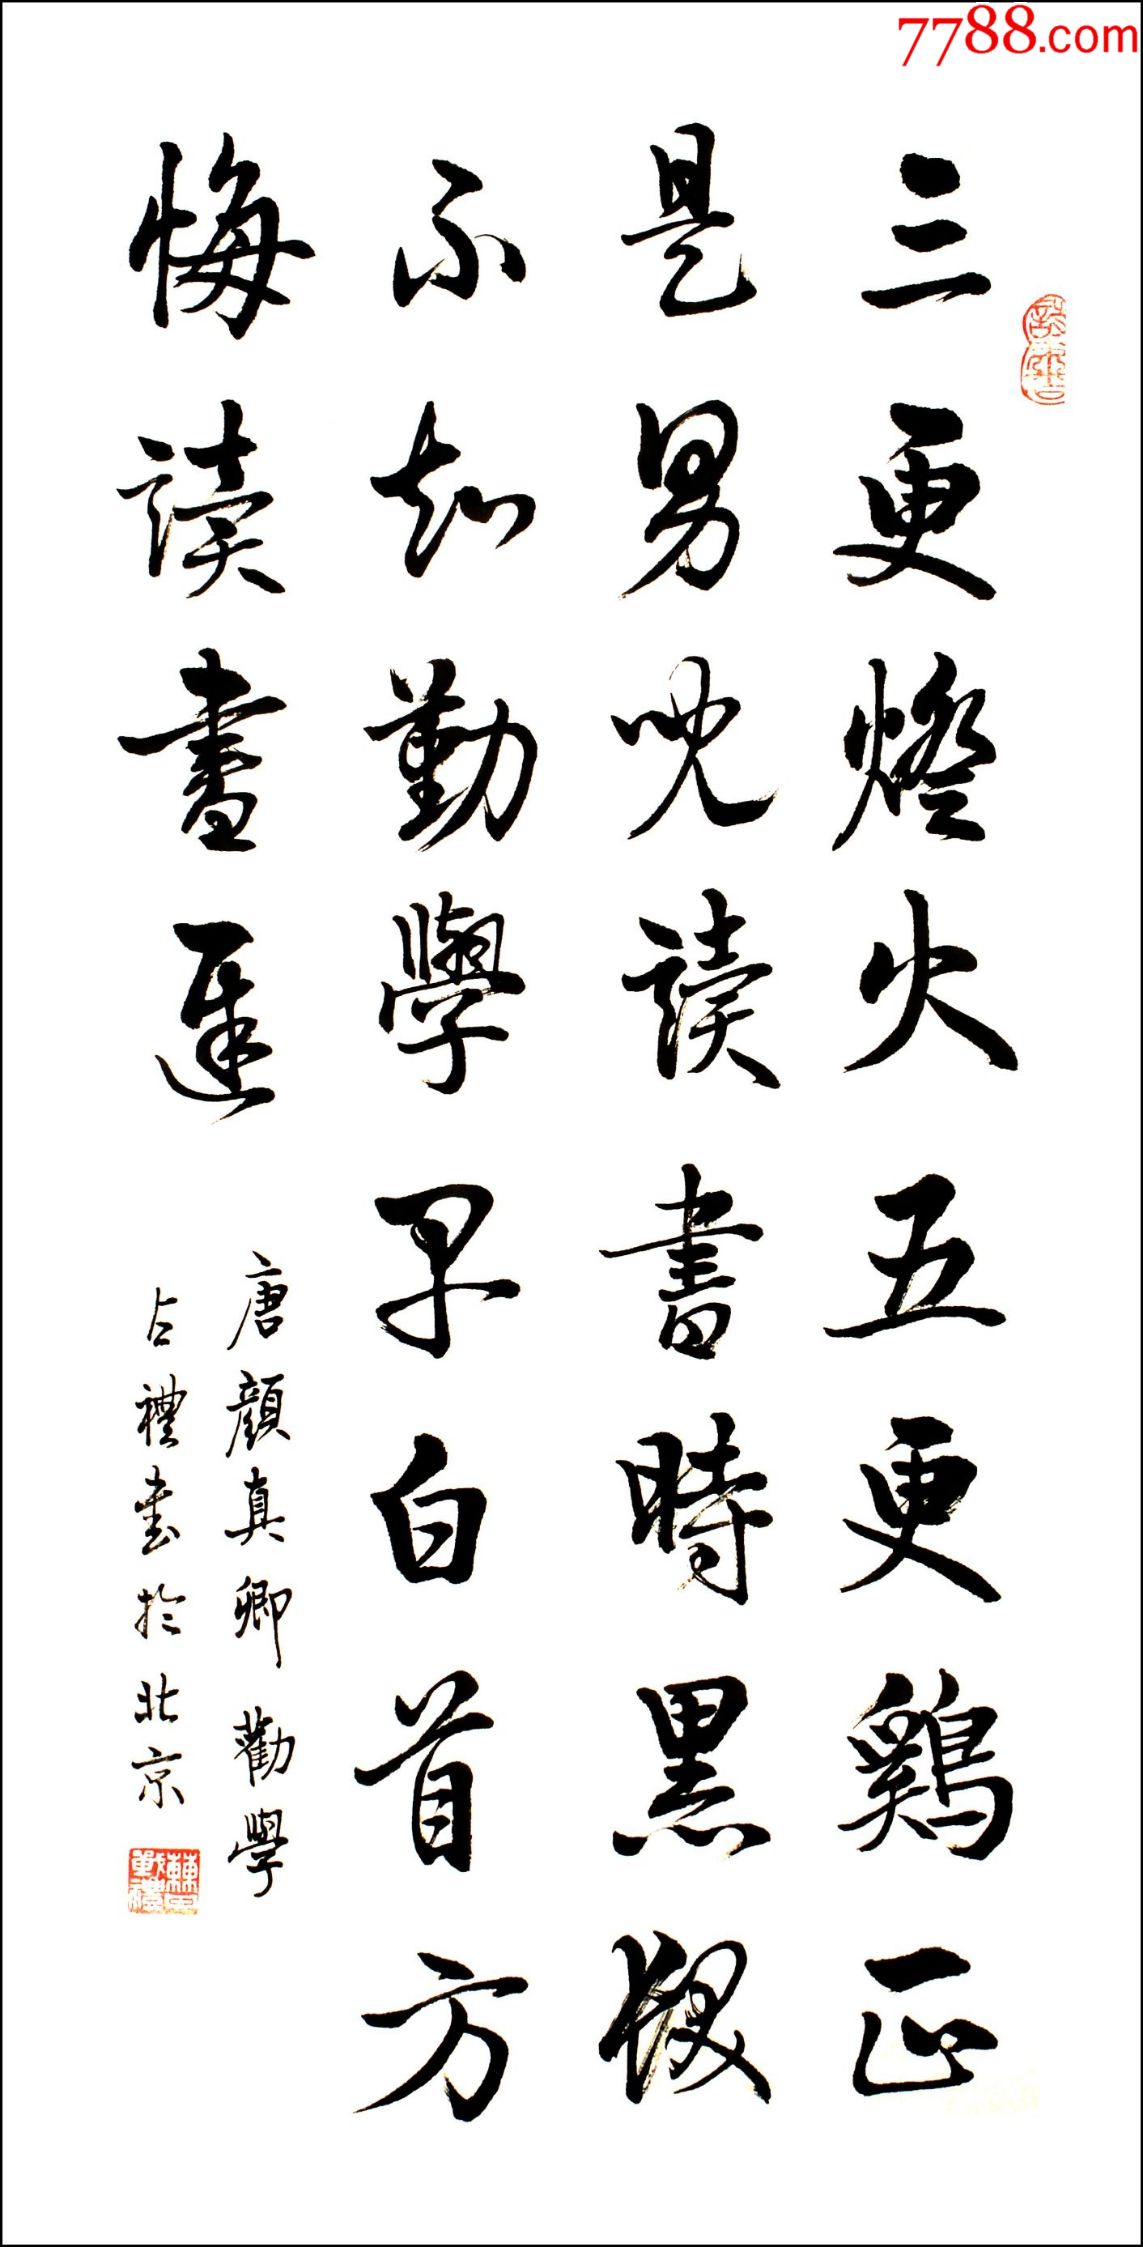 7788.com
三更燈火五更鷄正
是男兒讀書時黑髮
不知勤學早白首方
悔讀書遲
唐顏真卿勸學
占禮書於北京